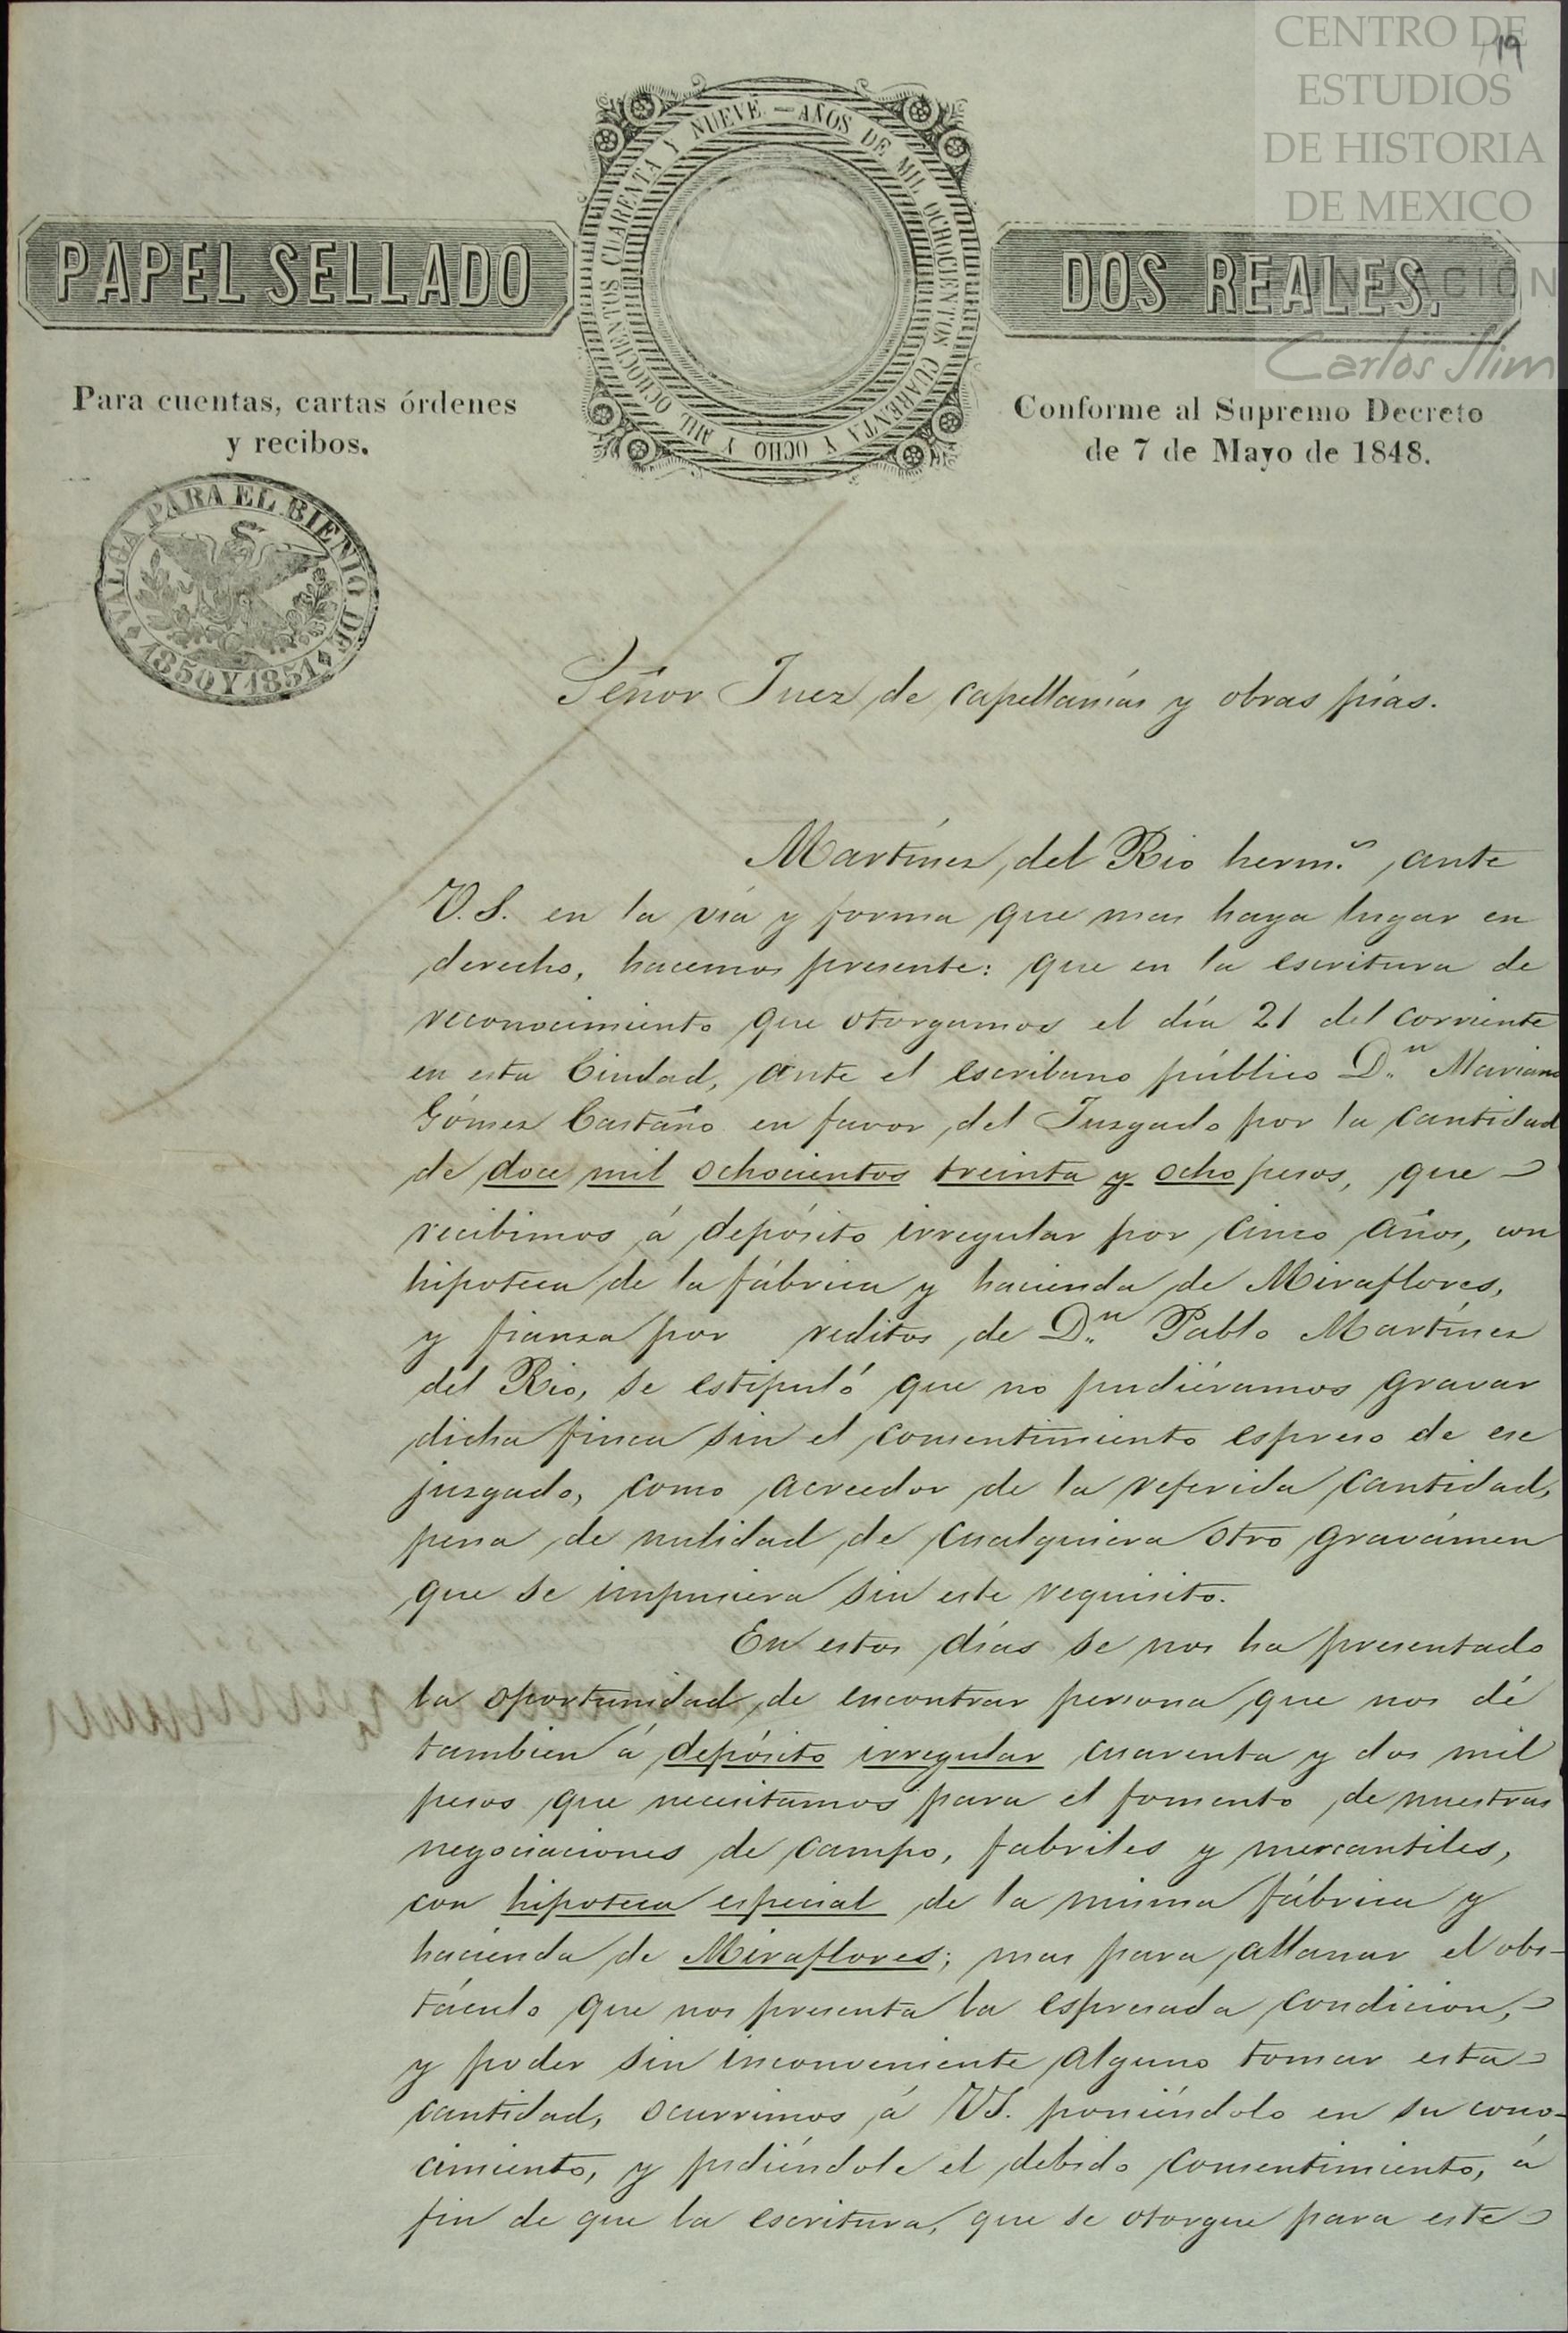 CENTRO DE
ESTUDIOS
DE HISTORIA
DE MEXICO
19
AÑOS DE MIL OCHOCIENTOS CUARENTA Y OCHO Y MIL OCHOCIENTOS CUARENTA Y NUEVE. —
PAPEL SELLADO
DOS REALES.
Carlos Slim
Para cuentas, cartas órdenes
y recibos.
Conforme al Supremo Decreto
de 7 de Mayo de 1848.
VALGA PARA EL BIENIO DE
1850 Y 1851
Señor Juez de capellanías y obras pías.
Martínez del Rio herm.s ante
V.S. en la vía y forma que mas haya lugar en
derecho, hacemos presente: que en la escritura de
reconocimiento que otorgamos el día 21 del corriente
en esta Ciudad, ante el escribano público D.n Mariano
Gómez Castaño en favor del Juzgado por la cantidad
de doce mil ochocientos treinta y ocho pesos, que
recibimos á depósito irregular por cinco años, con
hipoteca de la fábrica y hacienda de Miraflores,
y fianza por reditos de D.n Pablo Martínez
del Rio, se estipuló que no pudiéramos gravar
dicha finca sin el consentimiento espreso de ese
juzgado, como acreedor de la referida cantidad,
pena de nulidad de cualquiera otro gravámen
que se impusiera sin este requisito.
En estos días se nos ha presentado
la oportunidad de encontrar persona que nos dé
tambien á depósito irregular cuarenta y dos mil
pesos que necesitamos para el fomento de nuestras
negociaciones de campo, fabriles y mercantiles,
con hipoteca especial de la misma fábrica y
hacienda de Miraflores; mas para allanar el obs-
táculo que nos presenta la espresada condicion,
y poder sin inconveniente alguno tomar esta
cantidad, ocurrimos á VS. poniéndolo en su cono-
cimiento, y pidiéndole el debido consentimiento, á
fin de que la escritura, que se otorgue para este